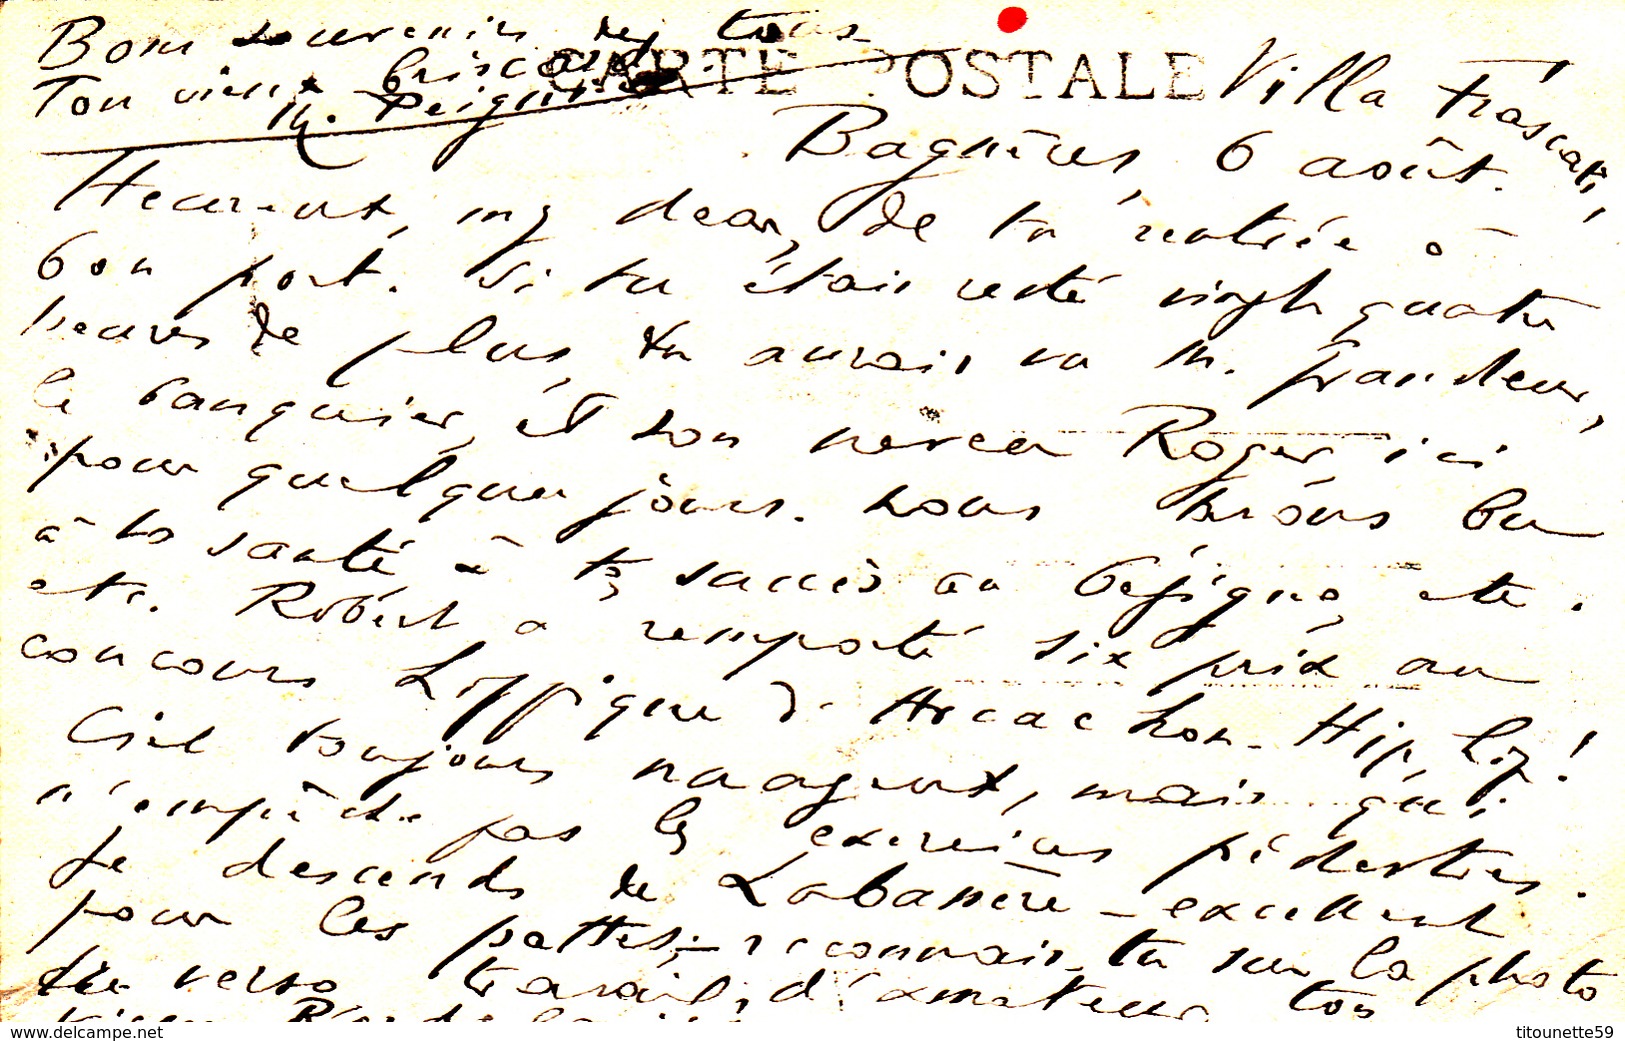 Bons souvenirs de tous
Ton vieux briscard.
M. Peign
CARTE POSTALE
Villa Frascati,
Bagnères, 6 août.
Heureux, my dear, de ta rentrée à
bon port. Si tu étais resté vingt quatre
heures de plus, tu aurais vu M. Grandeur,
le banquier, et son neveu Roger, ici
pour quelques jours. Nous avons bu
à ta santé, à tes succès au bésigue, etc.
etc. Robert a remporté six prix au
concours hippique d'Arcachon. Hip, hip!
Ciel toujours nuageux, mais qui
n'empêche pas les exercices pédestres.
Je descends de Labassère - excellent
pour les pattes, - reconnais-tu sur la photo
du verso, travail d'amateur, ton
vieux
delcampe.net
titounette59